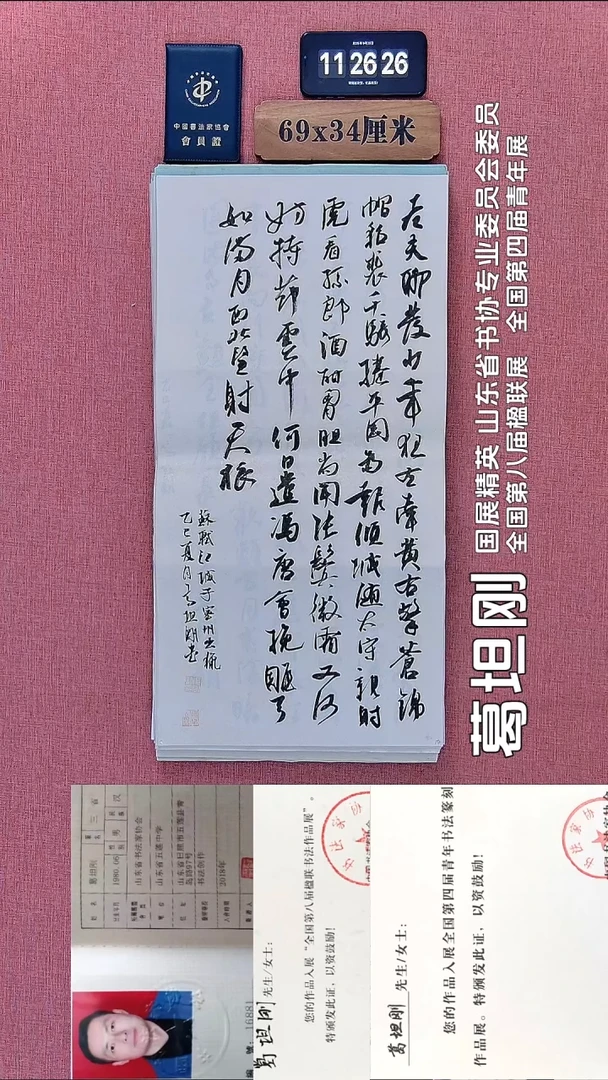 中國書法家協會
會員證
11 26 26
69x34厘米
老夫聊發少年狂左牽黃右擎蒼錦
帽貂裘千騎捲平岡為報傾城隨太守親射
虎看孫郎酒酣胸膽尚開張鬢微霜又何
妨持節雲中何日遣馮唐會挽雕弓
如滿月西北望射天狼
蘇軾江城子密州出獵
乙巳夏月葛坦剛書
国展精英 山东省书协专业委员会委员
全国第八届楹联展 全国第四届青年展
葛坦刚
姓名 葛坦刚
1980.06 性别 男 汉
山东省书法家协会
山东省五莲中学
山东省日照市五莲县
书法创作
2018年
16881
葛坦刚 先生/女士：
您的作品入展“全国第八届楹联书法作品展”，
特颁发此证，以资鼓励！
葛坦刚 先生/女士：
您的作品入展全国第四届青年书法篆刻
作品展。特颁发此证，以资鼓励！